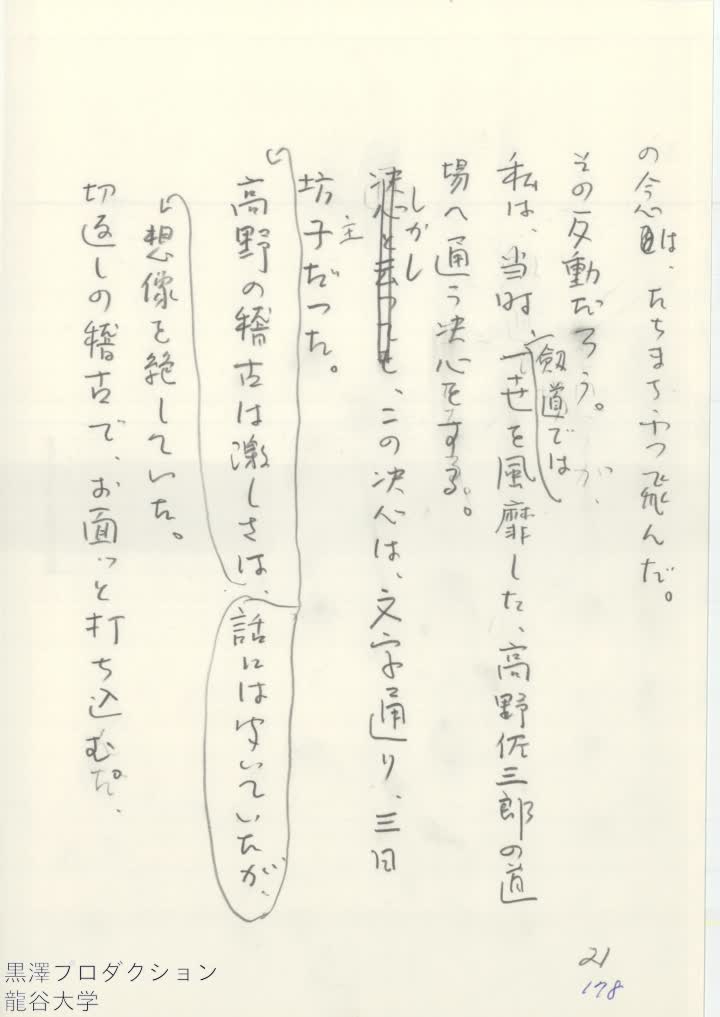 の念は、たちまちふっ飛んだ。
その反動だろう。が、
私は、当時
剣道では
一世を風靡した、高野佐三郎の道
場へ通う決心をする。
しかし
決心と云っても、この決心は、文字通り、三日
坊主だった。
高野の稽古は激しさは、話には聞いていたが、
想像を絶していた。
切返しの稽古で、お面っと打ち込む。
21
178
黒澤プロダクション
龍谷大学